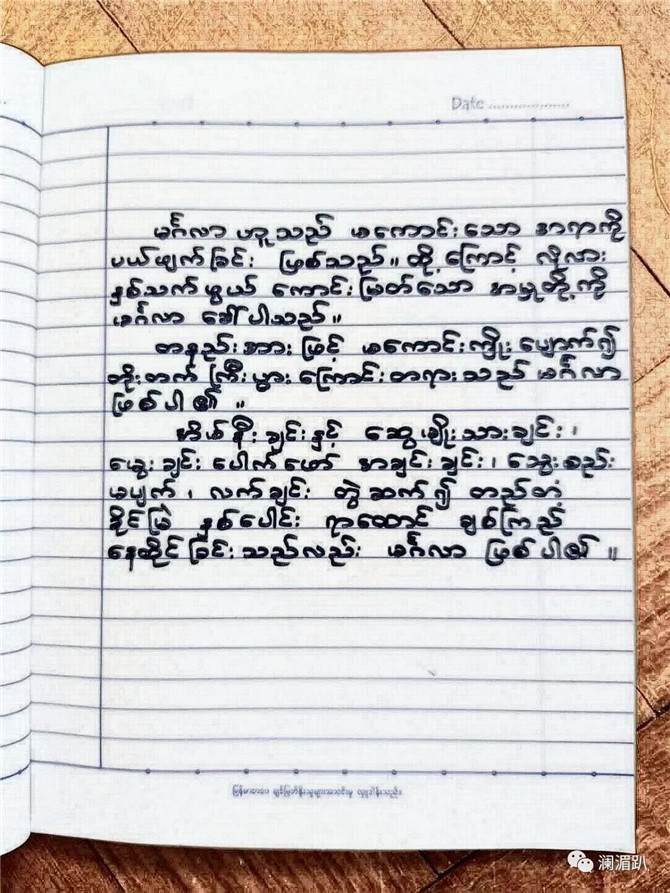 Date ....................
မင်္ဂလာ ဟူသည် မကောင်းသော အရာကို
ပယ်ဖျက်ခြင်း ဖြစ်သည်။ ထို့ကြောင့် လိုလား
နှစ်သက်ဖွယ် ကောင်းမြတ်သော အမှုတို့ကို
မင်္ဂလာ ခေါ်ပါသည်။
တနည်းအား ဖြင့် မကောင်းကျိုး ပျောက်၍
တိုးတက် ကြီးပွား ကြောင်း တရား သည် မင်္ဂလာ
ဖြစ်ပါ ၏ ။
အိမ်နီးချင်း နှင့် ဆွေမျိုးသားချင်း ၊
မွေးချင်း ပေါက်ဖော် အချင်းချင်း ၊ သွေးစည်း
မပျက် ၊ လက်ချင်း တွဲဆက်၍ တည်တံ့
ခိုင်မြဲ နှစ်ပေါင်း ရာထောင် ချစ်ကြည်
နေထိုင်ခြင်း သည်လည်း မင်္ဂလာ ဖြစ်ပါ၏ ။
澜湄趴